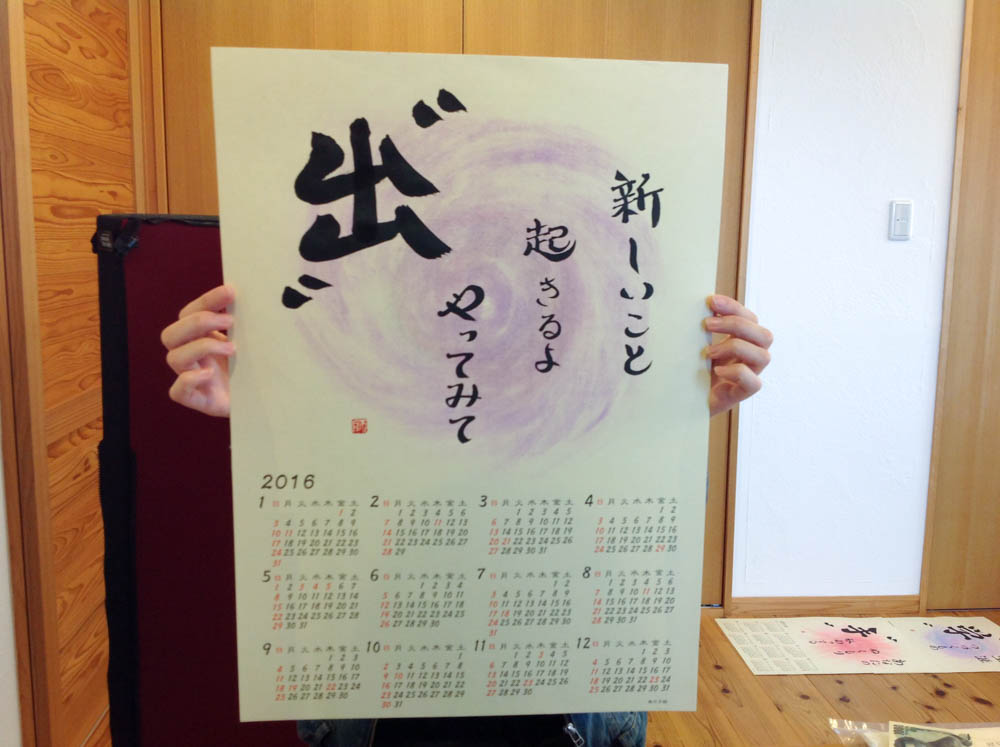 新しいこと
起きるよ
やってみて
〝出〟
2016
1 日 月 火 水 木 金 土
1 2
3 4 5 6 7 8 9
10 11 12 13 14 15 16
17 18 19 20 21 22 23
24 25 26 27 28 29 30
31
2 日 月 火 水 木 金 土
1 2 3 4 5 6
7 8 9 10 11 12 13
14 15 16 17 18 19 20
21 22 23 24 25 26 27
28 29
3 日 月 火 水 木 金 土
1 2 3 4 5
6 7 8 9 10 11 12
13 14 15 16 17 18 19
20 21 22 23 24 25 26
27 28 29 30 31
4 日 月 火 水 木 金 土
1 2
3 4 5 6 7 8 9
10 11 12 13 14 15 16
17 18 19 20 21 22 23
24 25 26 27 28 29 30
5 日 月 火 水 木 金 土
1 2 3 4 5 6 7
8 9 10 11 12 13 14
15 16 17 18 19 20 21
22 23 24 25 26 27 28
29 30 31
6 日 月 火 水 木 金 土
1 2 3 4
5 6 7 8 9 10 11
12 13 14 15 16 17 18
19 20 21 22 23 24 25
26 27 28 29 30
7 日 月 火 水 木 金 土
1 2
3 4 5 6 7 8 9
10 11 12 13 14 15 16
17 18 19 20 21 22 23
24 25 26 27 28 29 30
31
8 日 月 火 水 木 金 土
1 2 3 4 5 6
7 8 9 10 11 12 13
14 15 16 17 18 19 20
21 22 23 24 25 26 27
28 29 30 31
9 日 月 火 水 木 金 土
1 2 3
4 5 6 7 8 9 10
11 12 13 14 15 16 17
18 19 20 21 22 23 24
25 26 27 28 29 30
10 日 月 火 水 木 金 土
1
2 3 4 5 6 7 8
9 10 11 12 13 14 15
16 17 18 19 20 21 22
23 24 25 26 27 28 29
30 31
11 日 月 火 水 木 金 土
1 2 3 4 5
6 7 8 9 10 11 12
13 14 15 16 17 18 19
20 21 22 23 24 25 26
27 28 29 30
12 日 月 火 水 木 金 土
1 2 3
4 5 6 7 8 9 10
11 12 13 14 15 16 17
18 19 20 21 22 23 24
25 26 27 28 29 30 31